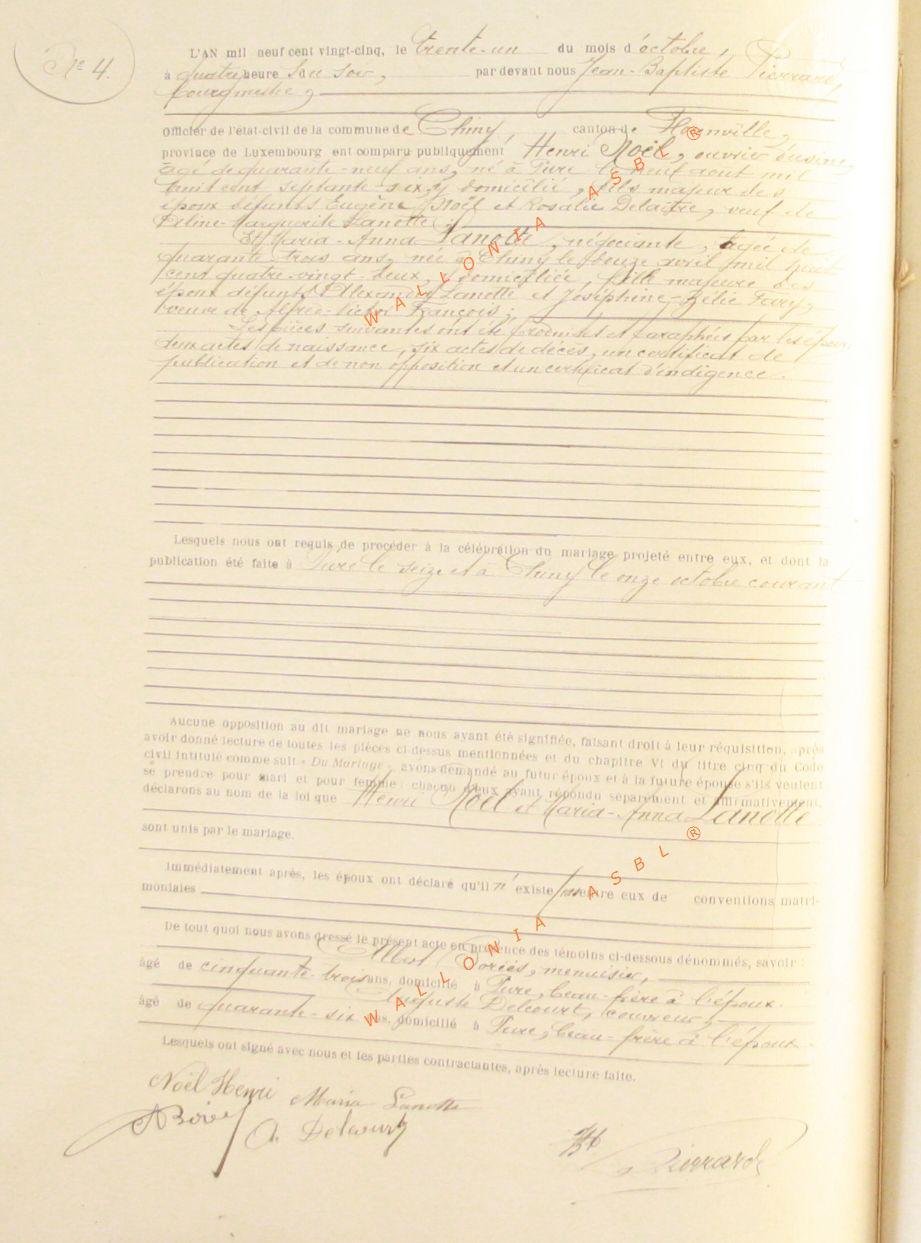 N° 4.
L'AN mil neuf cent vingt-cinq, le trente-un du mois d'octobre,
à quatre heure s du soir, par devant nous Jean-Baptiste Pierrard,
bourgmestre,
officier de l'état-civil de la commune de Chiny, canton de Florenville,
province de Luxembourg ont comparu publiquement Henri Noël, ouvrier d'usine,
âgé de quarante-neuf ans, né à Pure le neuf août mil
huit cent septante-six, y domicilié, fils majeur des
époux défunts Eugène Noël et Rosalie Delaitre, veuf de
Marguerite Lanotte;
Et Maria-Anna Lanotte, négociante, âgée de
quarante trois ans, née à Chiny le douze avril mil huit
cent quatre-vingt-deux, y domiciliée, fille majeure des
époux défunts Alexandre Lanotte et Joséphine-Zélie
veuve de Alfred-Victor François;
Les pièces suivantes ont été produites et paraphées par les époux:
deux actes de naissance, six actes de décès, un certificat de
publication et de non opposition et un certificat d'indigence.
Lesquels nous ont requis de procéder à la célébration du mariage projeté entre eux, et dont la
publication été faite à Pure le seize et à Chiny le onze octobre courant
Aucune opposition au dit mariage ne nous ayant été signifiée, faisant droit à leur réquisition, après
avoir donné lecture de toutes les pièces ci-dessus mentionnées et du chapitre VI du titre cinq du Code
civil intitulé comme suit « Du Mariage », avons demandé au futur époux et à la future épouse s'ils veulent
se prendre pour mari et pour femme: chacun d'eux ayant répondu séparément et affirmativement,
déclarons au nom de la loi que Henri Noël et Maria-Anna Lanotte
sont unis par le mariage.
Immédiatement après, les époux ont déclaré qu'il n'existe pas entre eux de conventions matri-
moniales
De tout quoi nous avons dressé le présent acte en présence des témoins ci-dessous dénommés, savoir:
Albert menuisier,
âgé de cinquante-trois ans, domicilié à Pure, beau-frère à l'époux.
Auguste Delcourt, couvreur,
âgé de quarante-six ans, domicilié à Pure, beau-frère à l'époux
Lesquels ont signé avec nous et les parties contractantes, après lecture faite.
Noël Henri Maria Lanotte
A. Delcourt
Pierrard
WALLONIA ASBL ®
WALLONIA ASBL ®